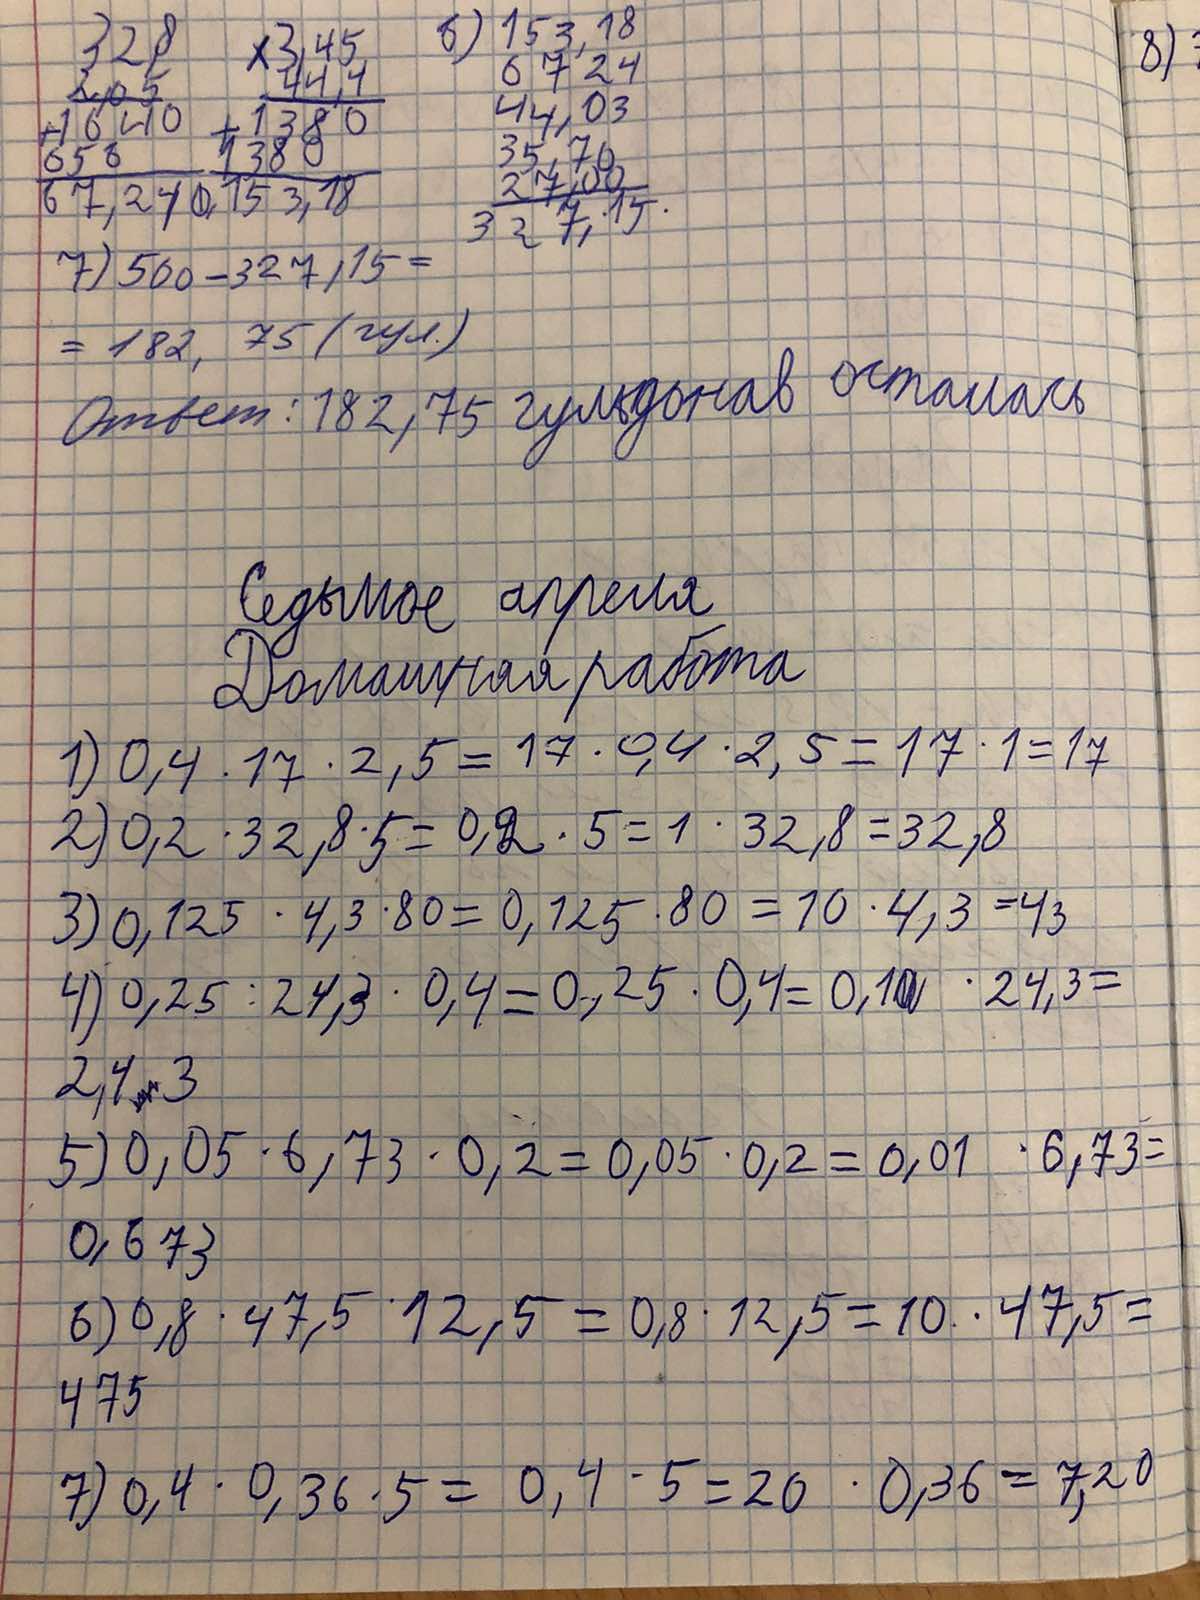 328
2,05
+1640
656
67,240
×3,45
44,4
+1380
1380
153,18
6) 153,18
67 24
44,03
35,70
27,00
327,15.
7) 500-327,15=
= 182, 75 (гул.)
Ответ: 182,75 гульдонав осталась
Седьмое апреля
Домашняя работа
1) 0,4 · 17 · 2,5 = 17 · 0,4 · 2,5 = 17 · 1 = 17
2) 0,2 · 32,8 · 5 = 0,2 · 5 = 1 · 32,8 = 32,8
3) 0,125 · 4,3 · 80 = 0,125 · 80 = 10 · 4,3 = 43
4) 0,25 : 24,3 · 0,4 = 0,25 · 0,4 = 0,10 · 24,3 =
2,4 3
5) 0,05 · 6,73 · 0,2 = 0,05 · 0,2 = 0,01 · 6,73 =
0,673
6) 0,8 · 47,5 · 12,5 = 0,8 · 12,5 = 10 · 47,5 =
475
7) 0,4 · 0,36 · 5 = 0,4 · 5 = 20 · 0,36 = 7,20
8)